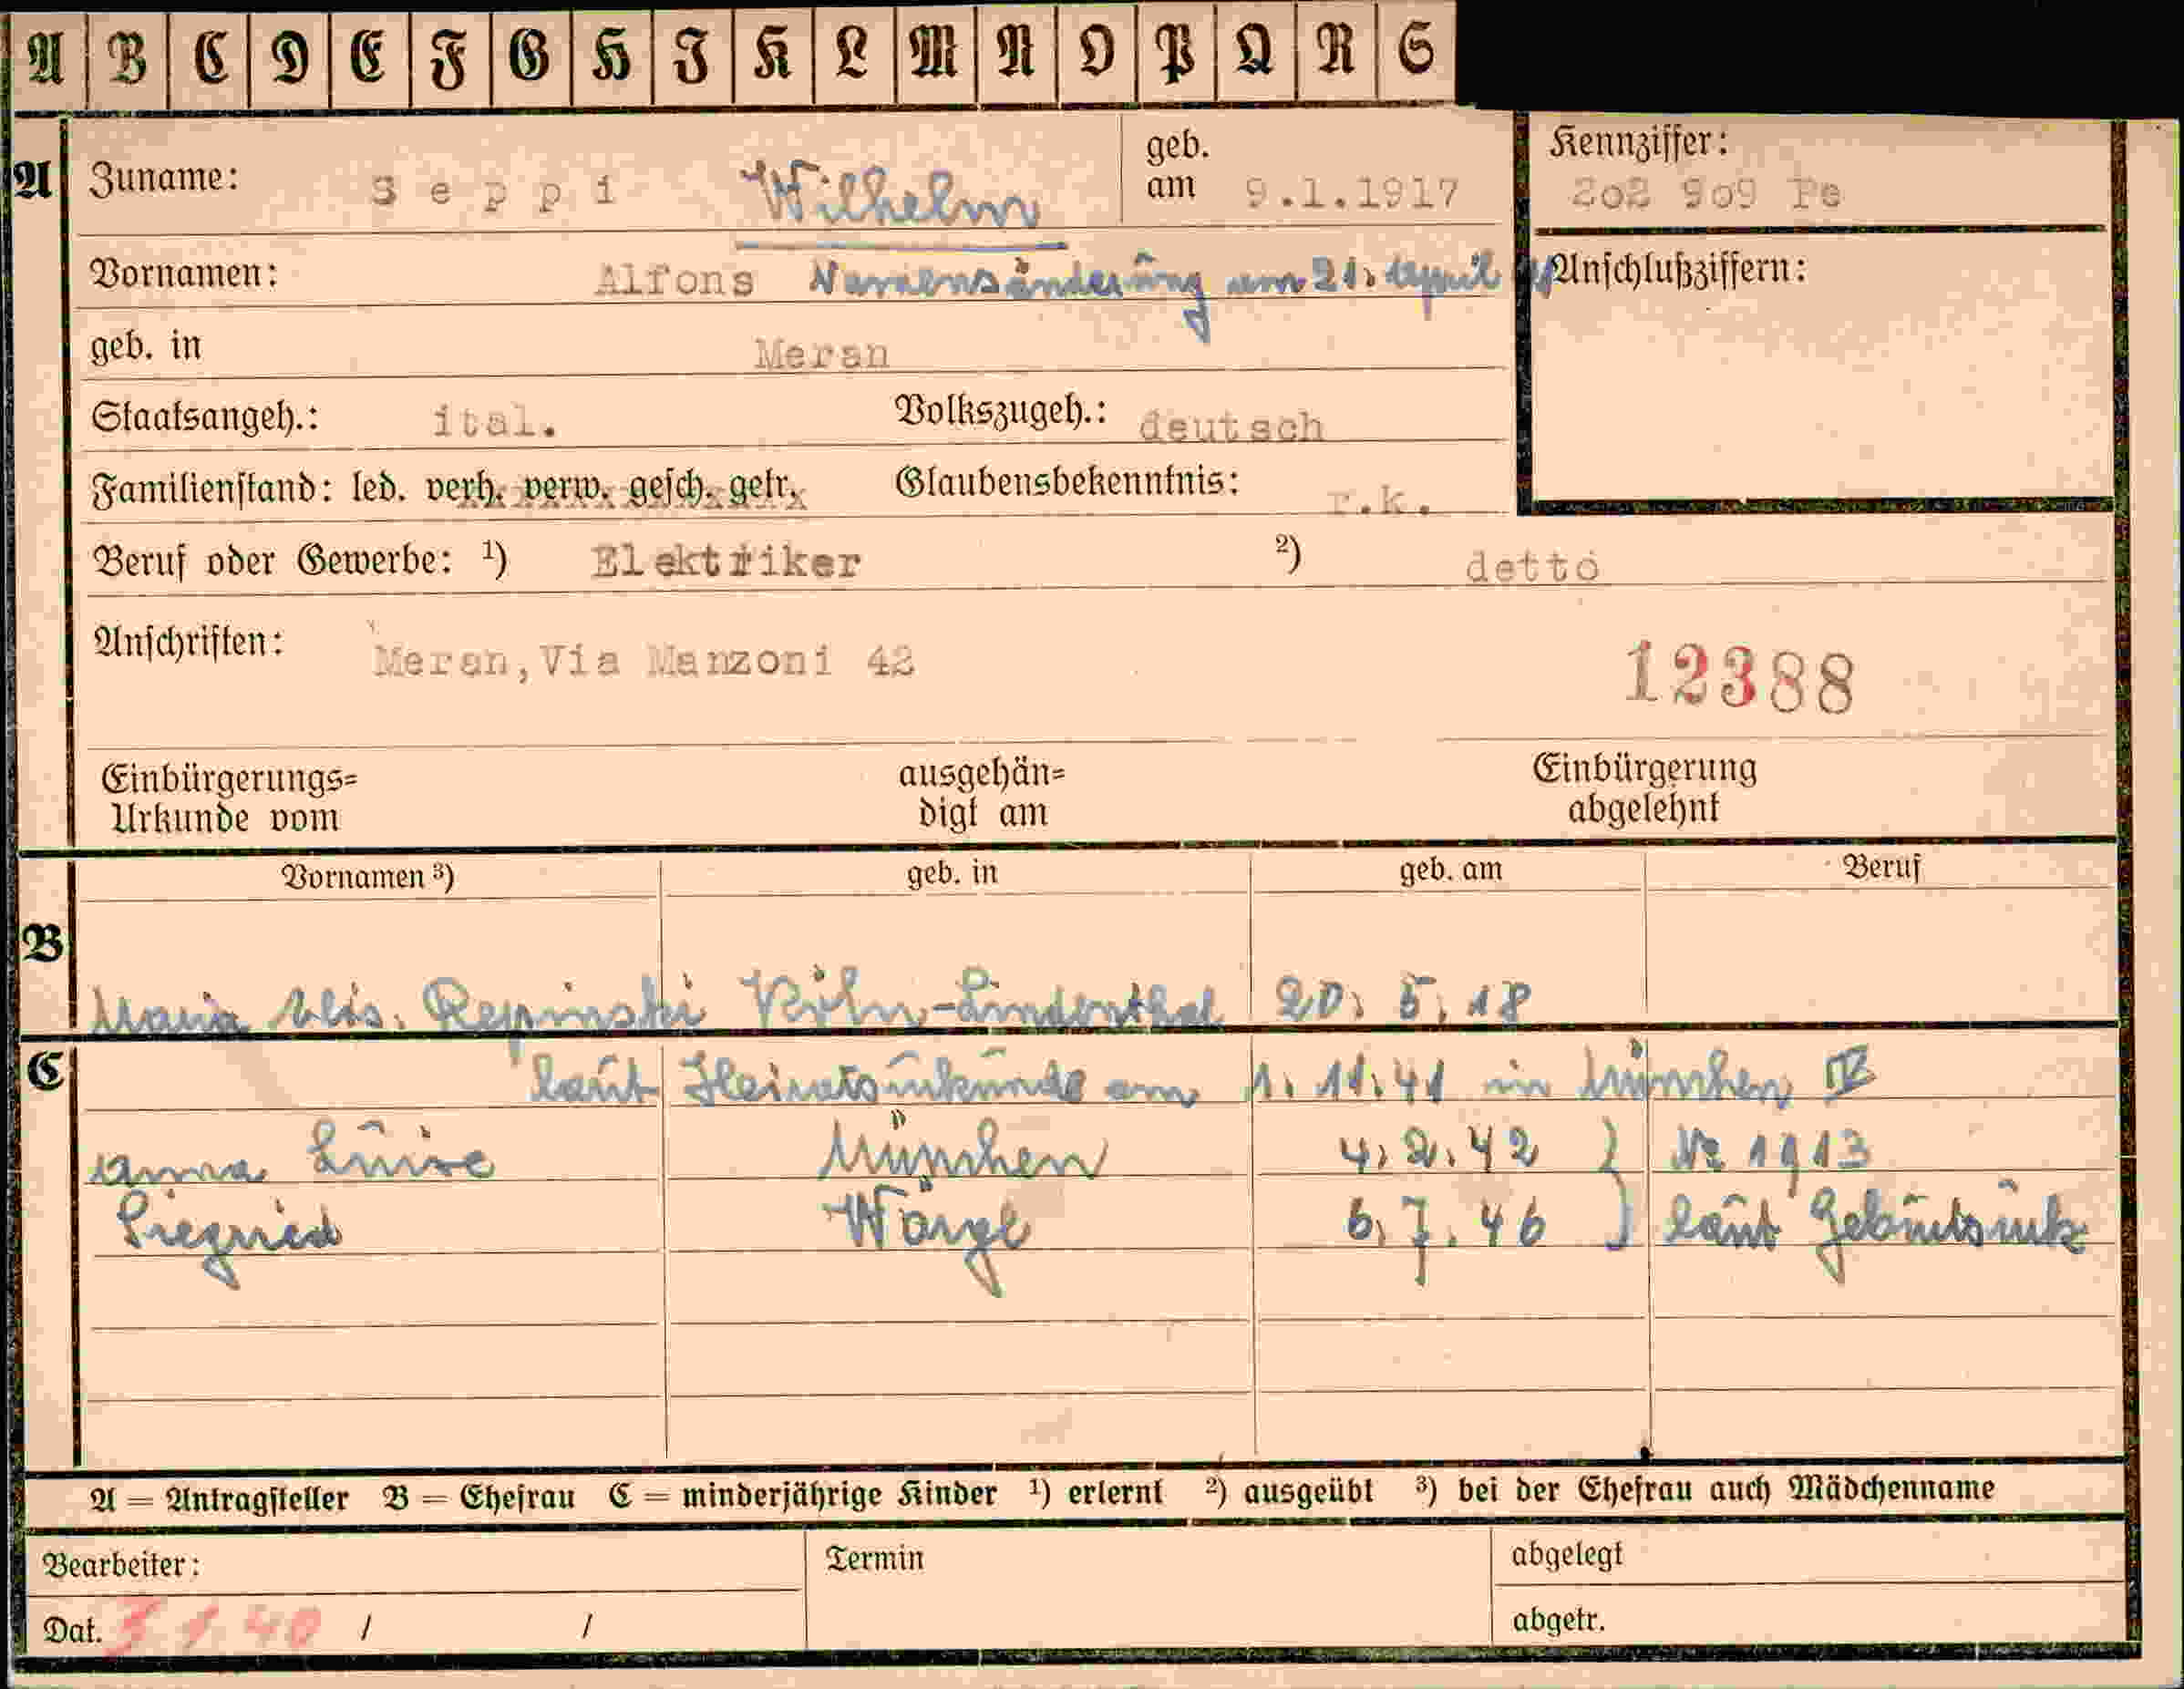 A B C D E F G H I K L M N O P Q R S
A Zuname: Seppi Wilhelm geb. am 9.1.1917 Kennziffer: 202 909 Pe
Vornamen: Alfons Namensänderung am 21. April Anschlußziffern:
geb. in Meran
Staatsangeh.: ital. Volkszugeh.: deutsch
Familienstand: led. verh. verw. gesch. getr. Glaubensbekenntnis: r.k.
Beruf oder Gewerbe: ¹) Elektriker ²) detto
Anschriften: Meran, Via Manzoni 42 12388
Einbürgerungs= ausgehän= Einbürgerung
Urkunde vom digt am abgelehnt
Vornamen ³) geb. in geb. am Beruf
B
Maria Elis. Repinski Köln-Lindenthal 20. 5. 18
C laut Heiratsurkunde am 1. 11. 41 in München IV
Anna Luise München 4. 2. 42 } № 1913
Siegfried Wörgl 6. 7. 46 } laut Geburtsurk
A = Antragsteller B = Ehefrau C = minderjährige Kinder ¹) erlernt ²) ausgeübt ³) bei der Ehefrau auch Mädchenname
Bearbeiter: Termin abgelegt
Dat. 3 1 40 / / abgetr.